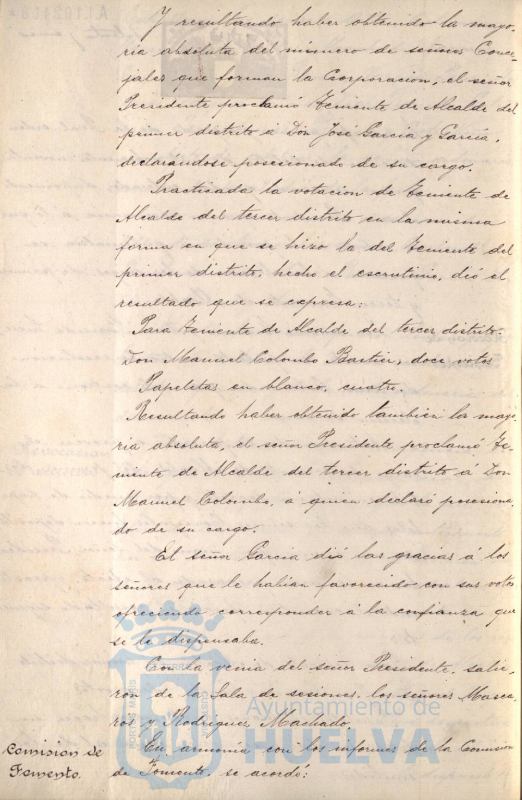 Y resultando haber obtenido la mayo-
ria absoluta del número de señores Conce-
jales que forman la Corporacion, el señor
Presidente proclamó Teniente de Alcalde del
primer distrito á Don José Garcia y Garcia,
declarándose posesionado de su cargo.
Practicada la votacion de Teniente de
Alcalde del tercer distrito en la misma
forma en que se hizo la del Teniente del
primer distrito, hecho el escrutinio, dió el
resultado que se expresa:
Para Teniente de Alcalde del tercer distrito.
Don Manuel Colombo Bartier, doce votos
Papeletas en blanco, cuatro.
Resultando haber obtenido tambien la mayo-
ria absoluta, el señor Presidente proclamó Te-
niente de Alcalde del tercer distrito á Don
Manuel Colombo, á quien declaró posesiona-
do de su cargo.
El señor Garcia dió las gracias á los
señores que le habian favorecido con sus votos
ofreciendo corresponder á la confianza que
se le dispensaba.
Con la venia del señor Presidente, salie-
ron de la Sala de sesiones los señores Masca-
ros y Rodriguez Machado.
Comision de
Fomento.
En armonia con los informes de la Comision
de Fomento, se acordó:
PORTUS MARIS
ET TERRAE
CUSTODIA
Ayuntamiento de
HUELVA